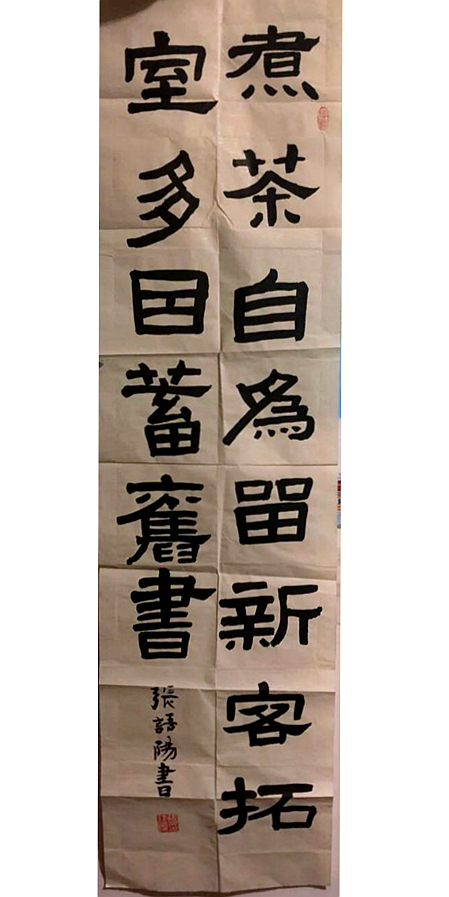 煮茶自為留新客拓
室多囙蓄舊書
張語陽書